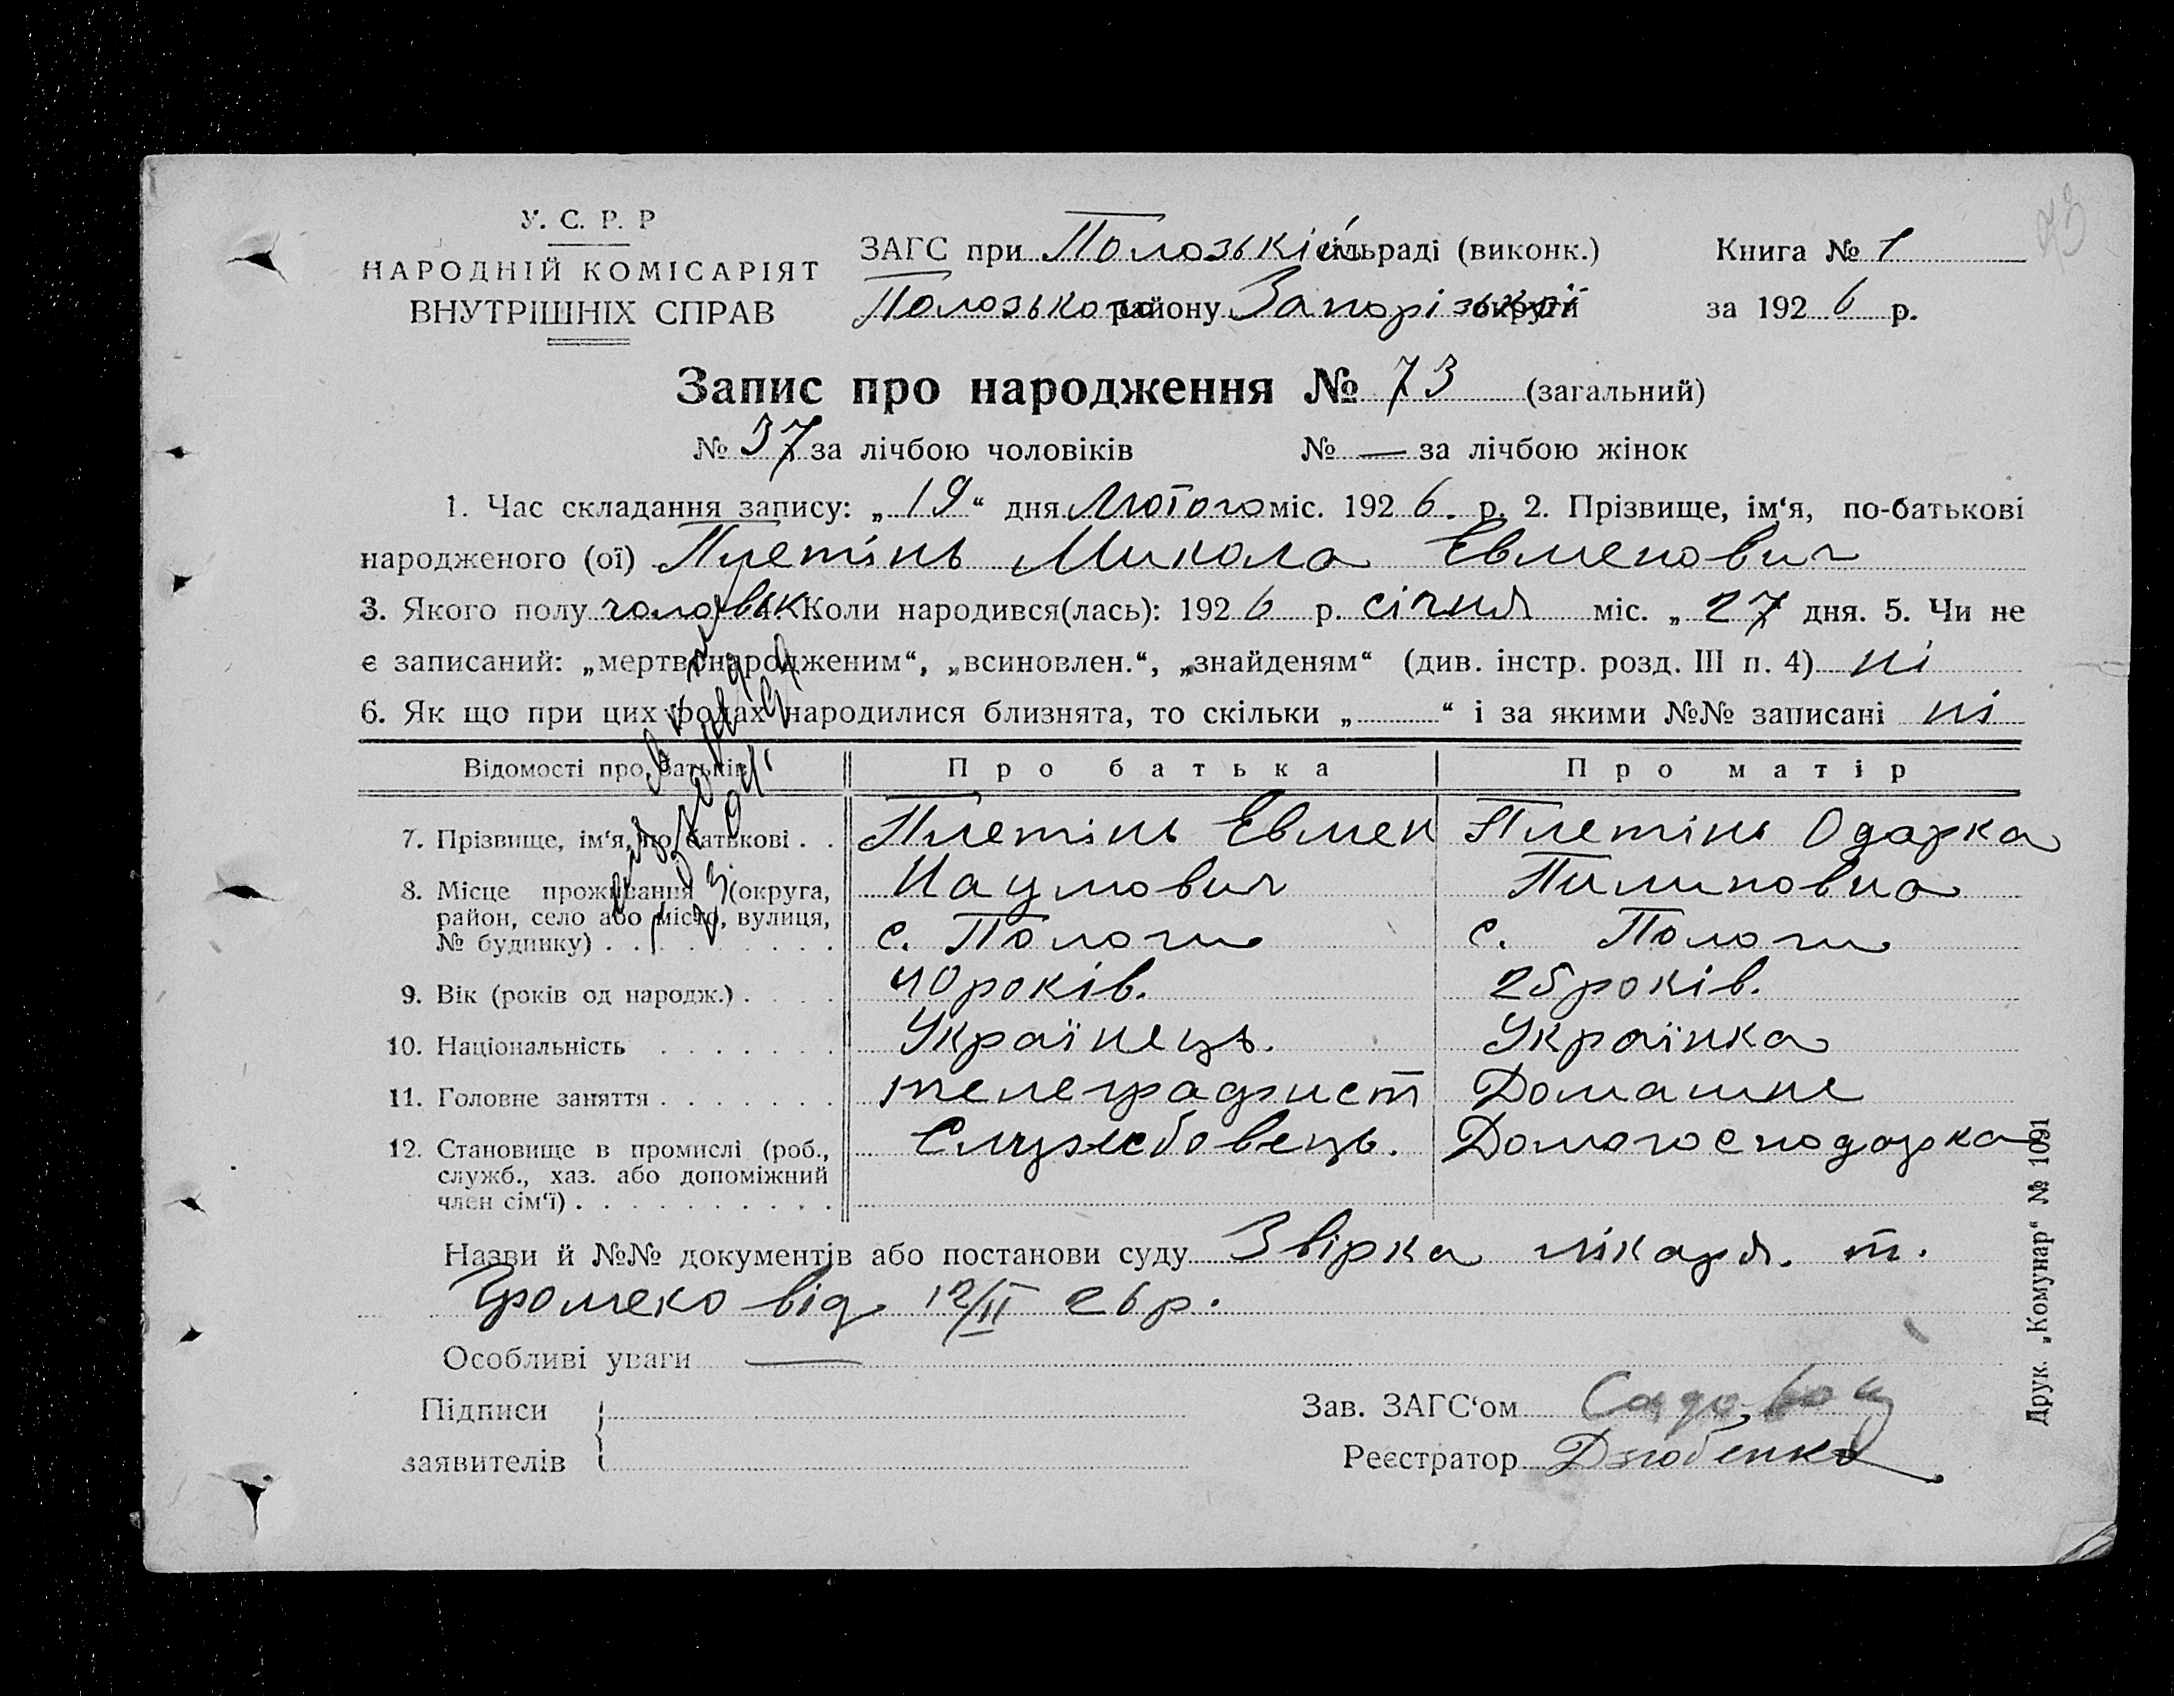 73
У. С. Р. Р
НАРОДНІЙ КОМІСАРІЯТ
ВНУТРІШНІХ СПРАВ
ЗАГС при Полозькій сільраді (виконк.)
Книга № 1
Полозького району Запорізької округи
за 1926 р.
Запис про народження № 73 (загальний)
№ 37 за лічбою чоловіків № — за лічбою жінок
1. Час складання запису: „19“ дня Лютого міс. 1926. р. 2. Прізвище, ім‘я, по-батькові
народженого (ої) Плетінь Микола Евменович
3. Якого полу чоловік 4. Коли народився(лась): 1926 р. січня міс. „27 дня. 5. Чи не
є записаний: „мертвонародженим“, „всиновлен.“, „знайденям“ (див. інстр. розд. III п. 4) ні
6. Як що при цих родах народилися близнята, то скільки „ “ і за якими №№ записані ні
Відомості про батьків Про батька Про матір
7. Прізвище, ім‘я, по батькові . . Плетінь Евмен Плетінь Одарка
Наумович Пилиповна
8. Місце проживання (округа,
район, село або місто, вулиця,
№ будинку) . . . . . . . . . с. Пологи с. Пологи
9. Вік (років од народж.) . . . . 40 років. 25 років.
10. Національність . . . . . . . Українець. Українка
11. Головне заняття . . . . . . . телеграфист Домашне
12. Становище в промислі (роб.,
служб., хаз. або допоміжний
член сім‘ї) . . . . . . . . . . Службовець. Домогосподарка
Назви й №№ документів або постанови суду Звірка лікаря. т.
Громеко від 12/II 26 р.
Особливі уваги —
Підписи
заявителів
Зав. ЗАГС‘ом
Реєстратор Дзюбенко
Друк. „Комунар“ № 1091